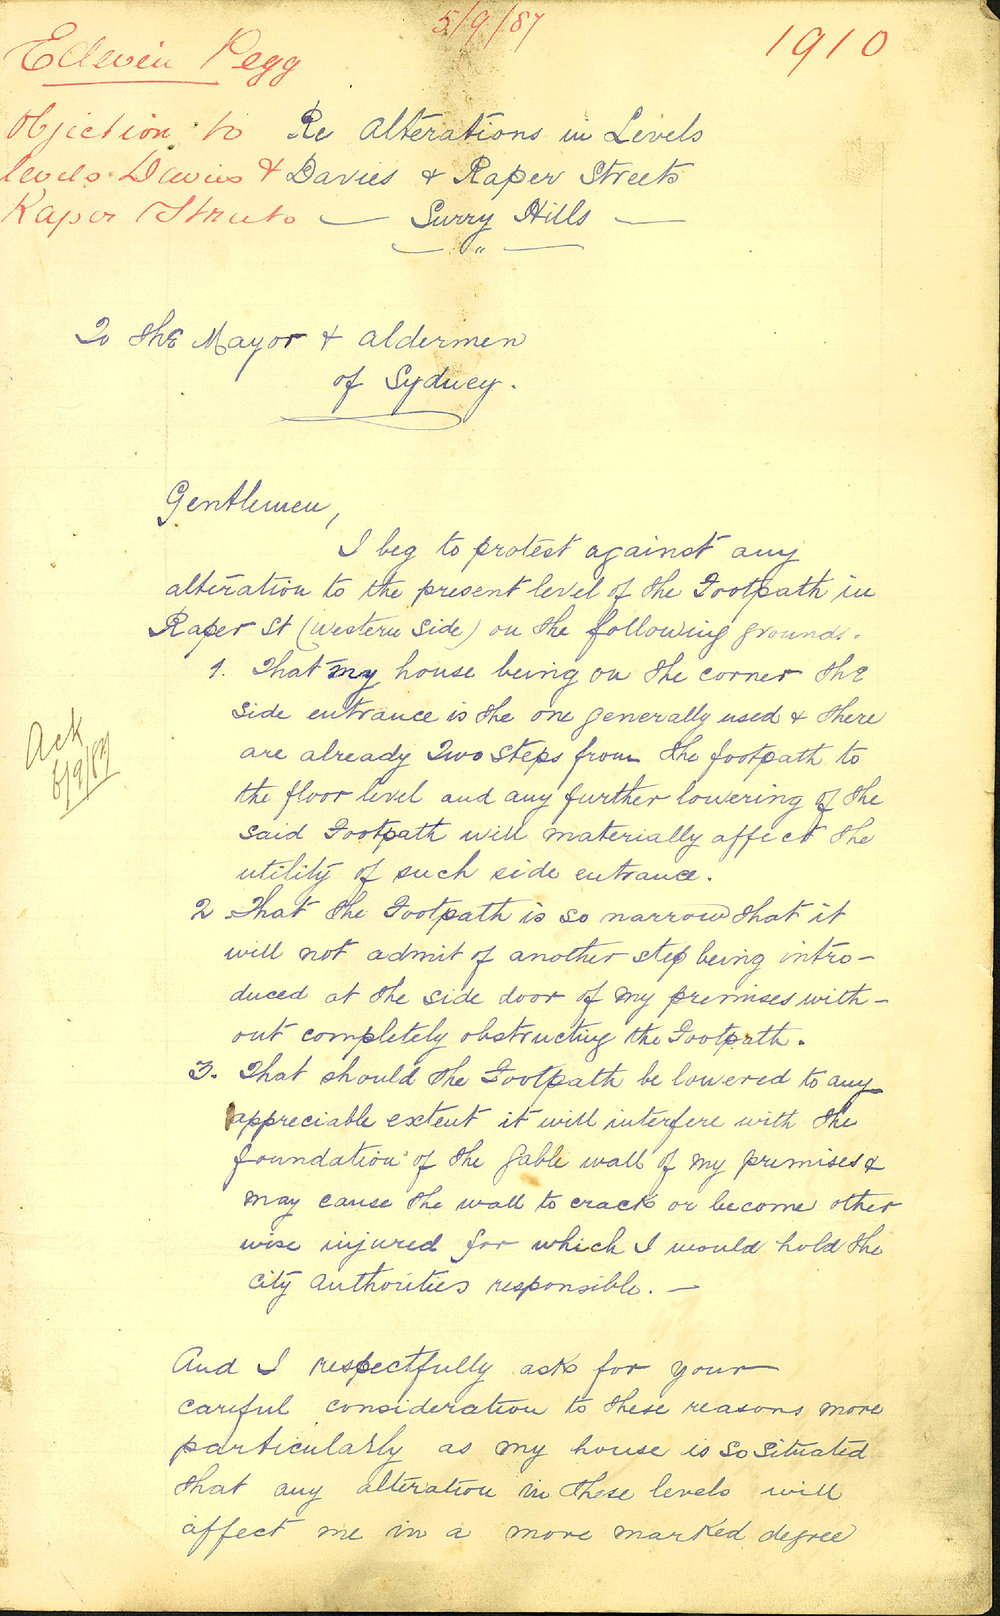 5/9/87
1910
Edwin Pegg
Objection to
levels Davies &
Raper Streets
Re Alterations in Levels
Davies & Raper Streets
— Surry Hills —
— " —
To the Mayor & Aldermen
of Sydney.
Gentlemen,
I beg to protest against any
alteration to the present level of the Footpath in
Raper St (Western Side) on the following grounds.
1. That my house being on the corner the
side entrance is the one generally used & there
are already Two steps from the footpath to
the floor level and any further lowering of the
said Footpath will materially affect the
utility of such side entrance.
2 That the Footpath is so narrow that it
will not admit of another step being intro-
duced at the side door of my premises with-
out completely obstructing the Footpath.
3. That should the Footpath be lowered to any
appreciable extent it will interfere with the
foundation of the Gable wall of my premises &
may cause the wall to crack or become other
wise injured for which I would hold the
City Authorities responsible. —
Ack
6/9/87
And I respectfully ask for your
careful consideration to these reasons more
particularly as my house is so situated
that any alteration in these levels will
affect me in a more marked degree